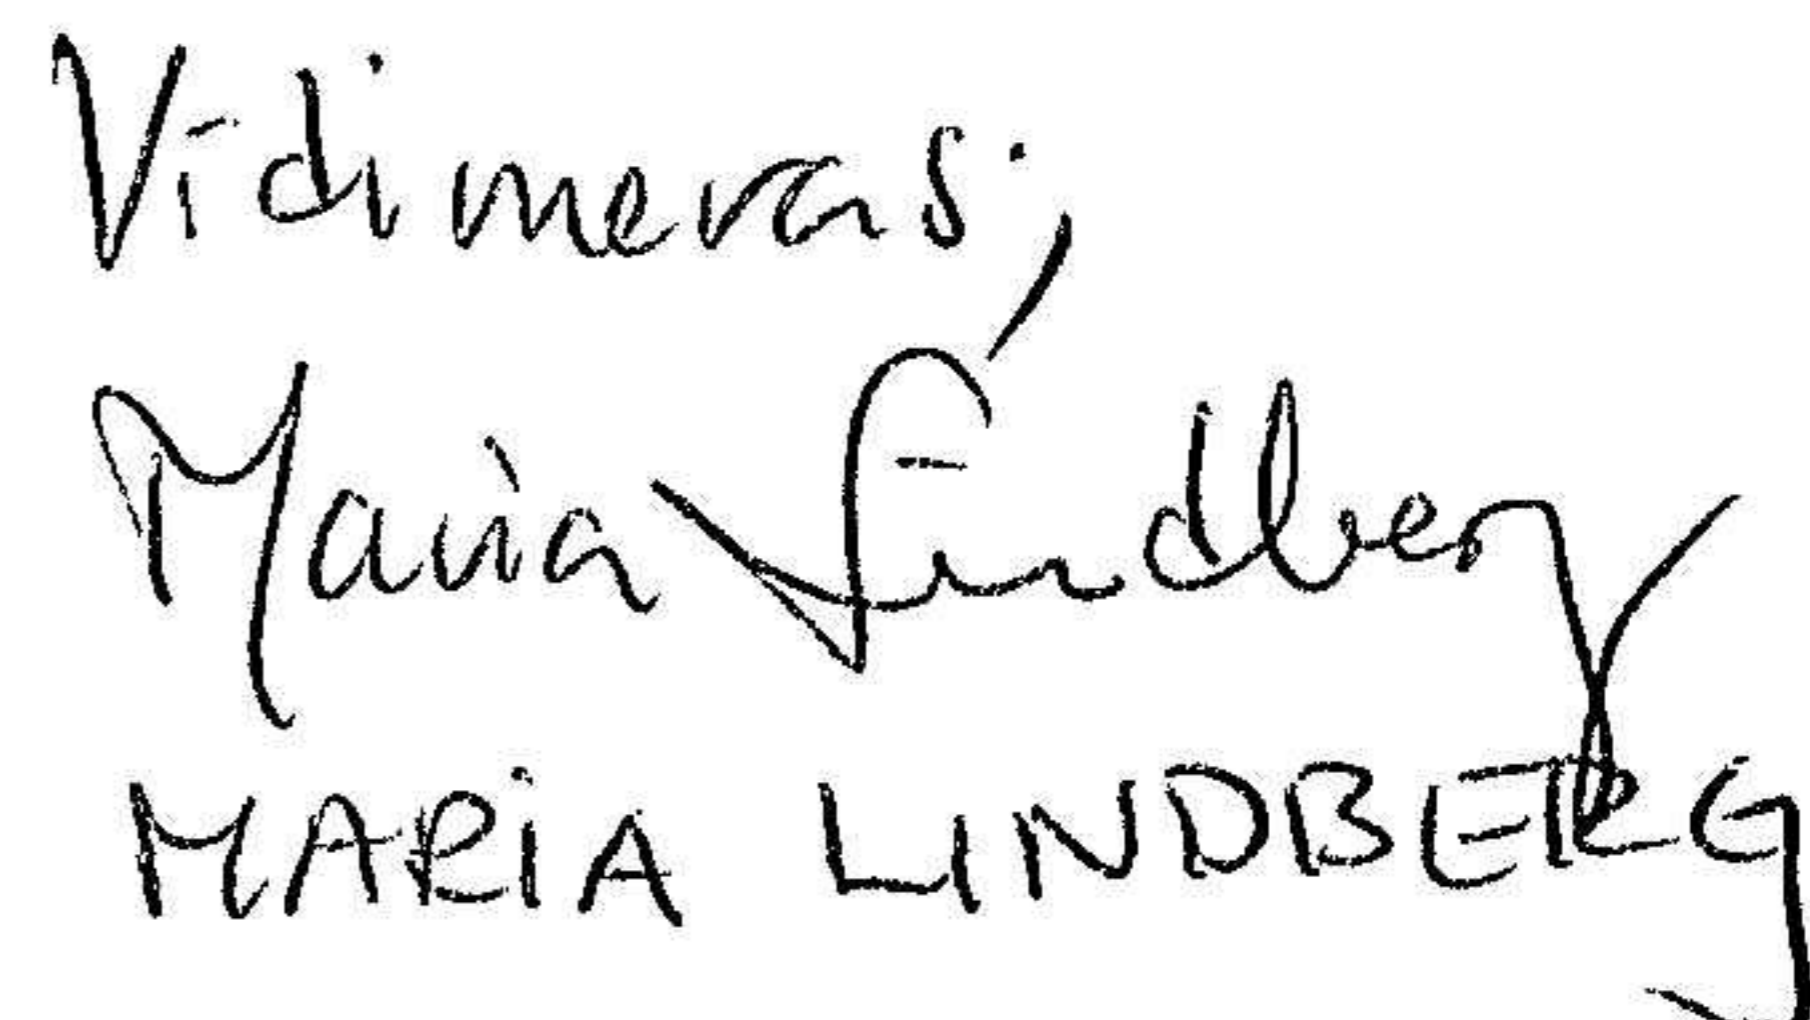 Vidimeras;
Maria Lindberg
MARiA LINDBERG